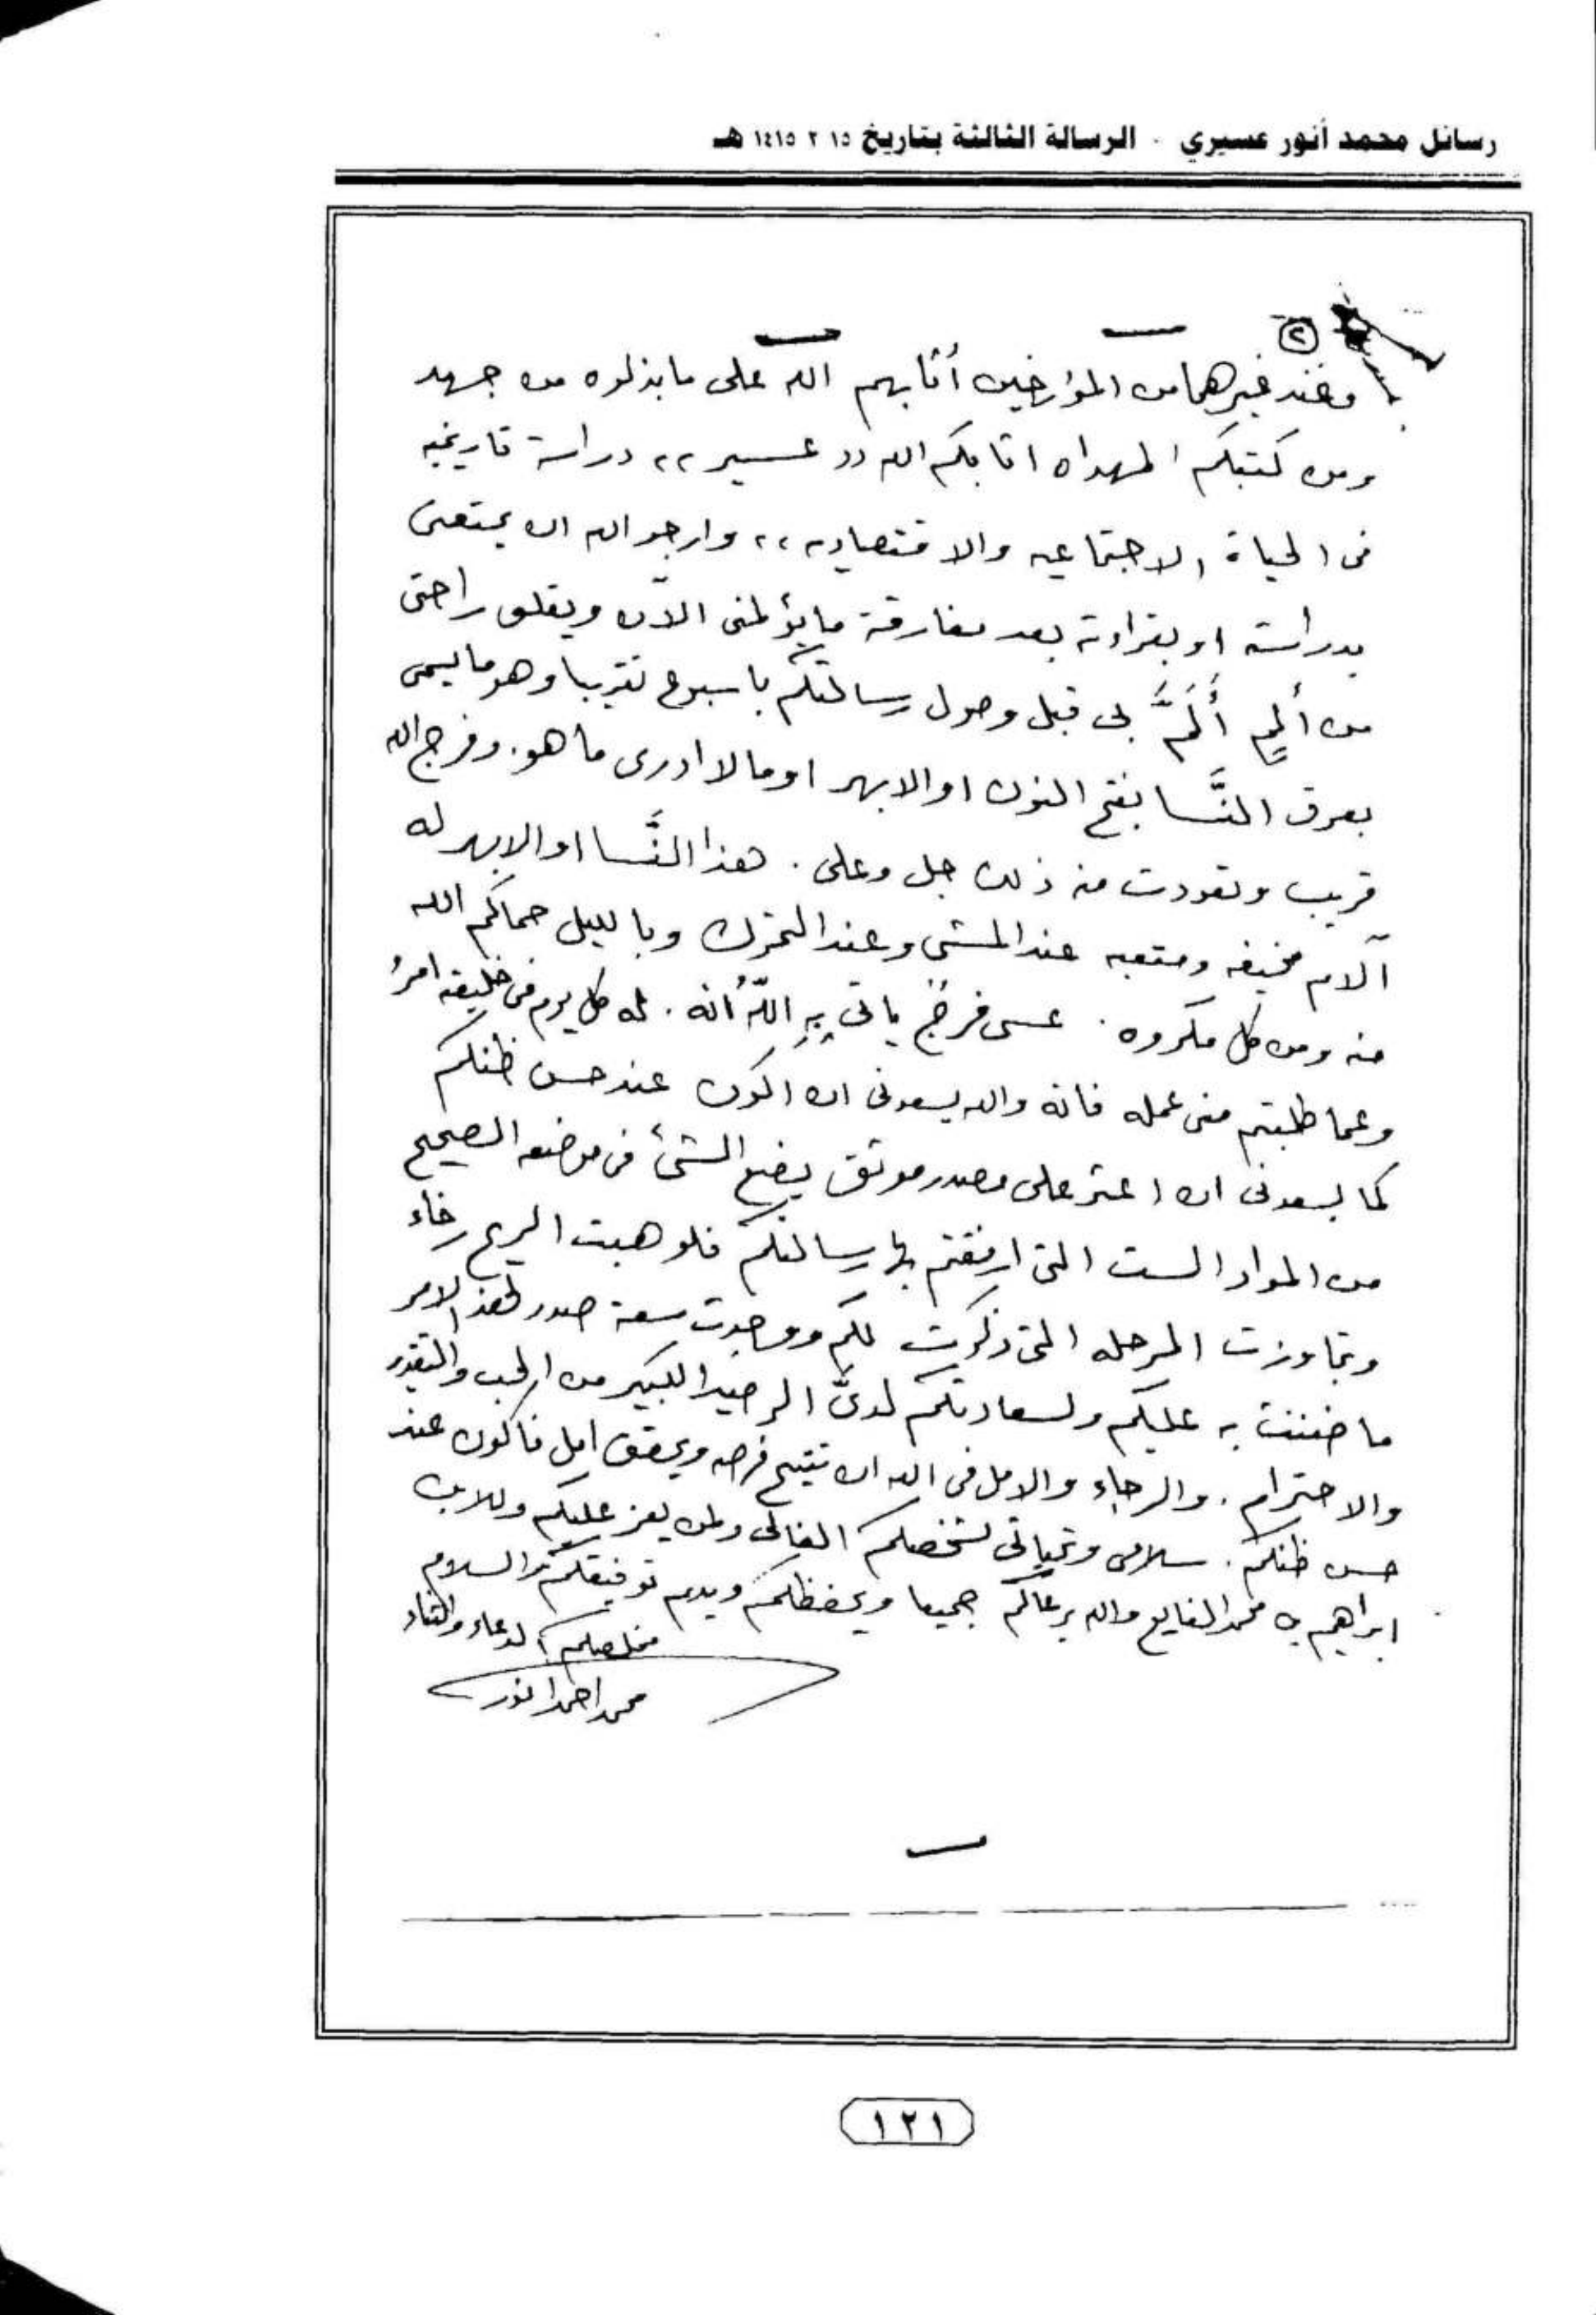 رسائل محمد أنور عسيري - الرسالة الثالثة بتاريخ ١٥ ٢ ١٤١٥ هـ
٢
وعند غيرهما من المؤرخين أثابهم الله على ما بذلوه من جهد
ومن كتبكم المهداه اثابكم الله ,, عسير ,, دراسة تاريخيه
في الحياة الاجتماعيه والاقتصاديه ,, وارجو الله ان يمتعنى
بدراسته او بقراءته بعد مفارقة ما يؤلمنى الآن ويقلق راحتى
من ألمٍ أَلَمَّ بى قبل وصول رسالتكم باسبوع تقريبا وهو مايسمى
بعرق النَّسا بفتح النون او الابهر او مالا ادرى ما هو. وفرج الله
قريب وتعودت منه ذلك جل وعلى . هذا النَّسا او الابهر له
آلام مخيفه ومتعبه عند المشى وعند التحرك وبالليل حماكم الله
منه ومن كل مكروه . عسى فرجٌ ياتى بِهِ اللهُ انه . له كل يوم فى خليقته امرُ
وعما طلبتم منى عمله فانه والله يسعدنى ان اكون عند حسن ظنكم
كما يسعدنى ان اعثر على مصدر موثق يضع الشئ فى موضعه الصحيح
من المواد الست التى ارفقتم بها رسالتكم فلو هبت الريح رخاء
وتجاوزت المرحله التى ذكرت لكم ووجدت سعة صدر لهذا الامر
ما ضننت به عليكم ولسعادتكم لدىَّ الرصيد الكبير من الحب والتقدير
والاحترام . والرجاء والامل فى الله ان تتيح فرصه ويحقق امل فاكون عند
حسن ظنكم . سلامى وتحياتى لشخصكم الغالى ولمن يعز عليكم وللابن
ابراهيم بن محمد الفايع والله يرعاكم جميعا ويحفظكم ويديم توفيقكم والسلام
مخلصكم الدعاء والثناء
محمد احمد انور
١٢١